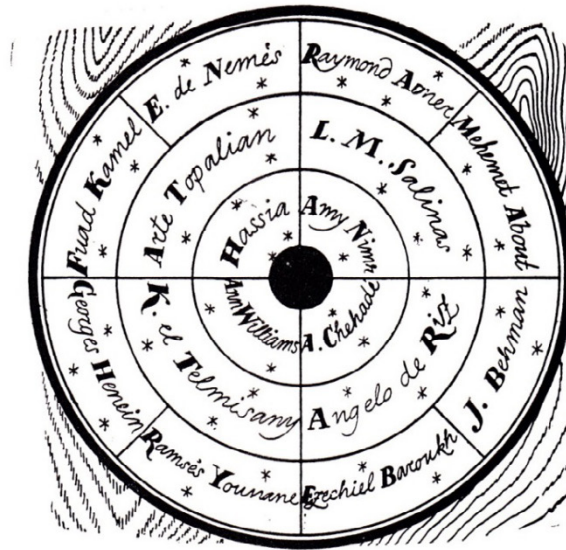 E. de Nemès
Raymond Abner
Mehemet About
J. Behman
Ezechiel Baroukh
Ramsès Younane
Georges Henein
Fuad Kamel
Arte Topalian
L. M. Salinas
Angelo de Riz
K. el Telmisany
Hassia
Amy Nimr
A. Chehade
Ann Williams